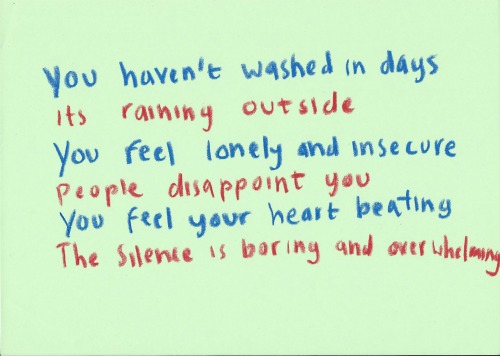 You haven't washed in days
its raining outside
You feel lonely and insecure
People disappoint you
You feel your heart beating
The Silence is boring and overwhelming